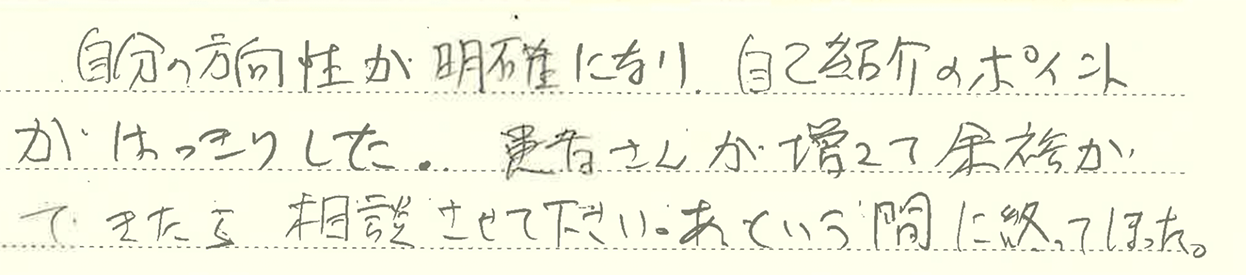 自分の方向性が明確になり、自己紹介のポイント
がはっきりした。患者さんが増えて余裕が
できたら相談させて下さい。あっという間に終ってしまった。